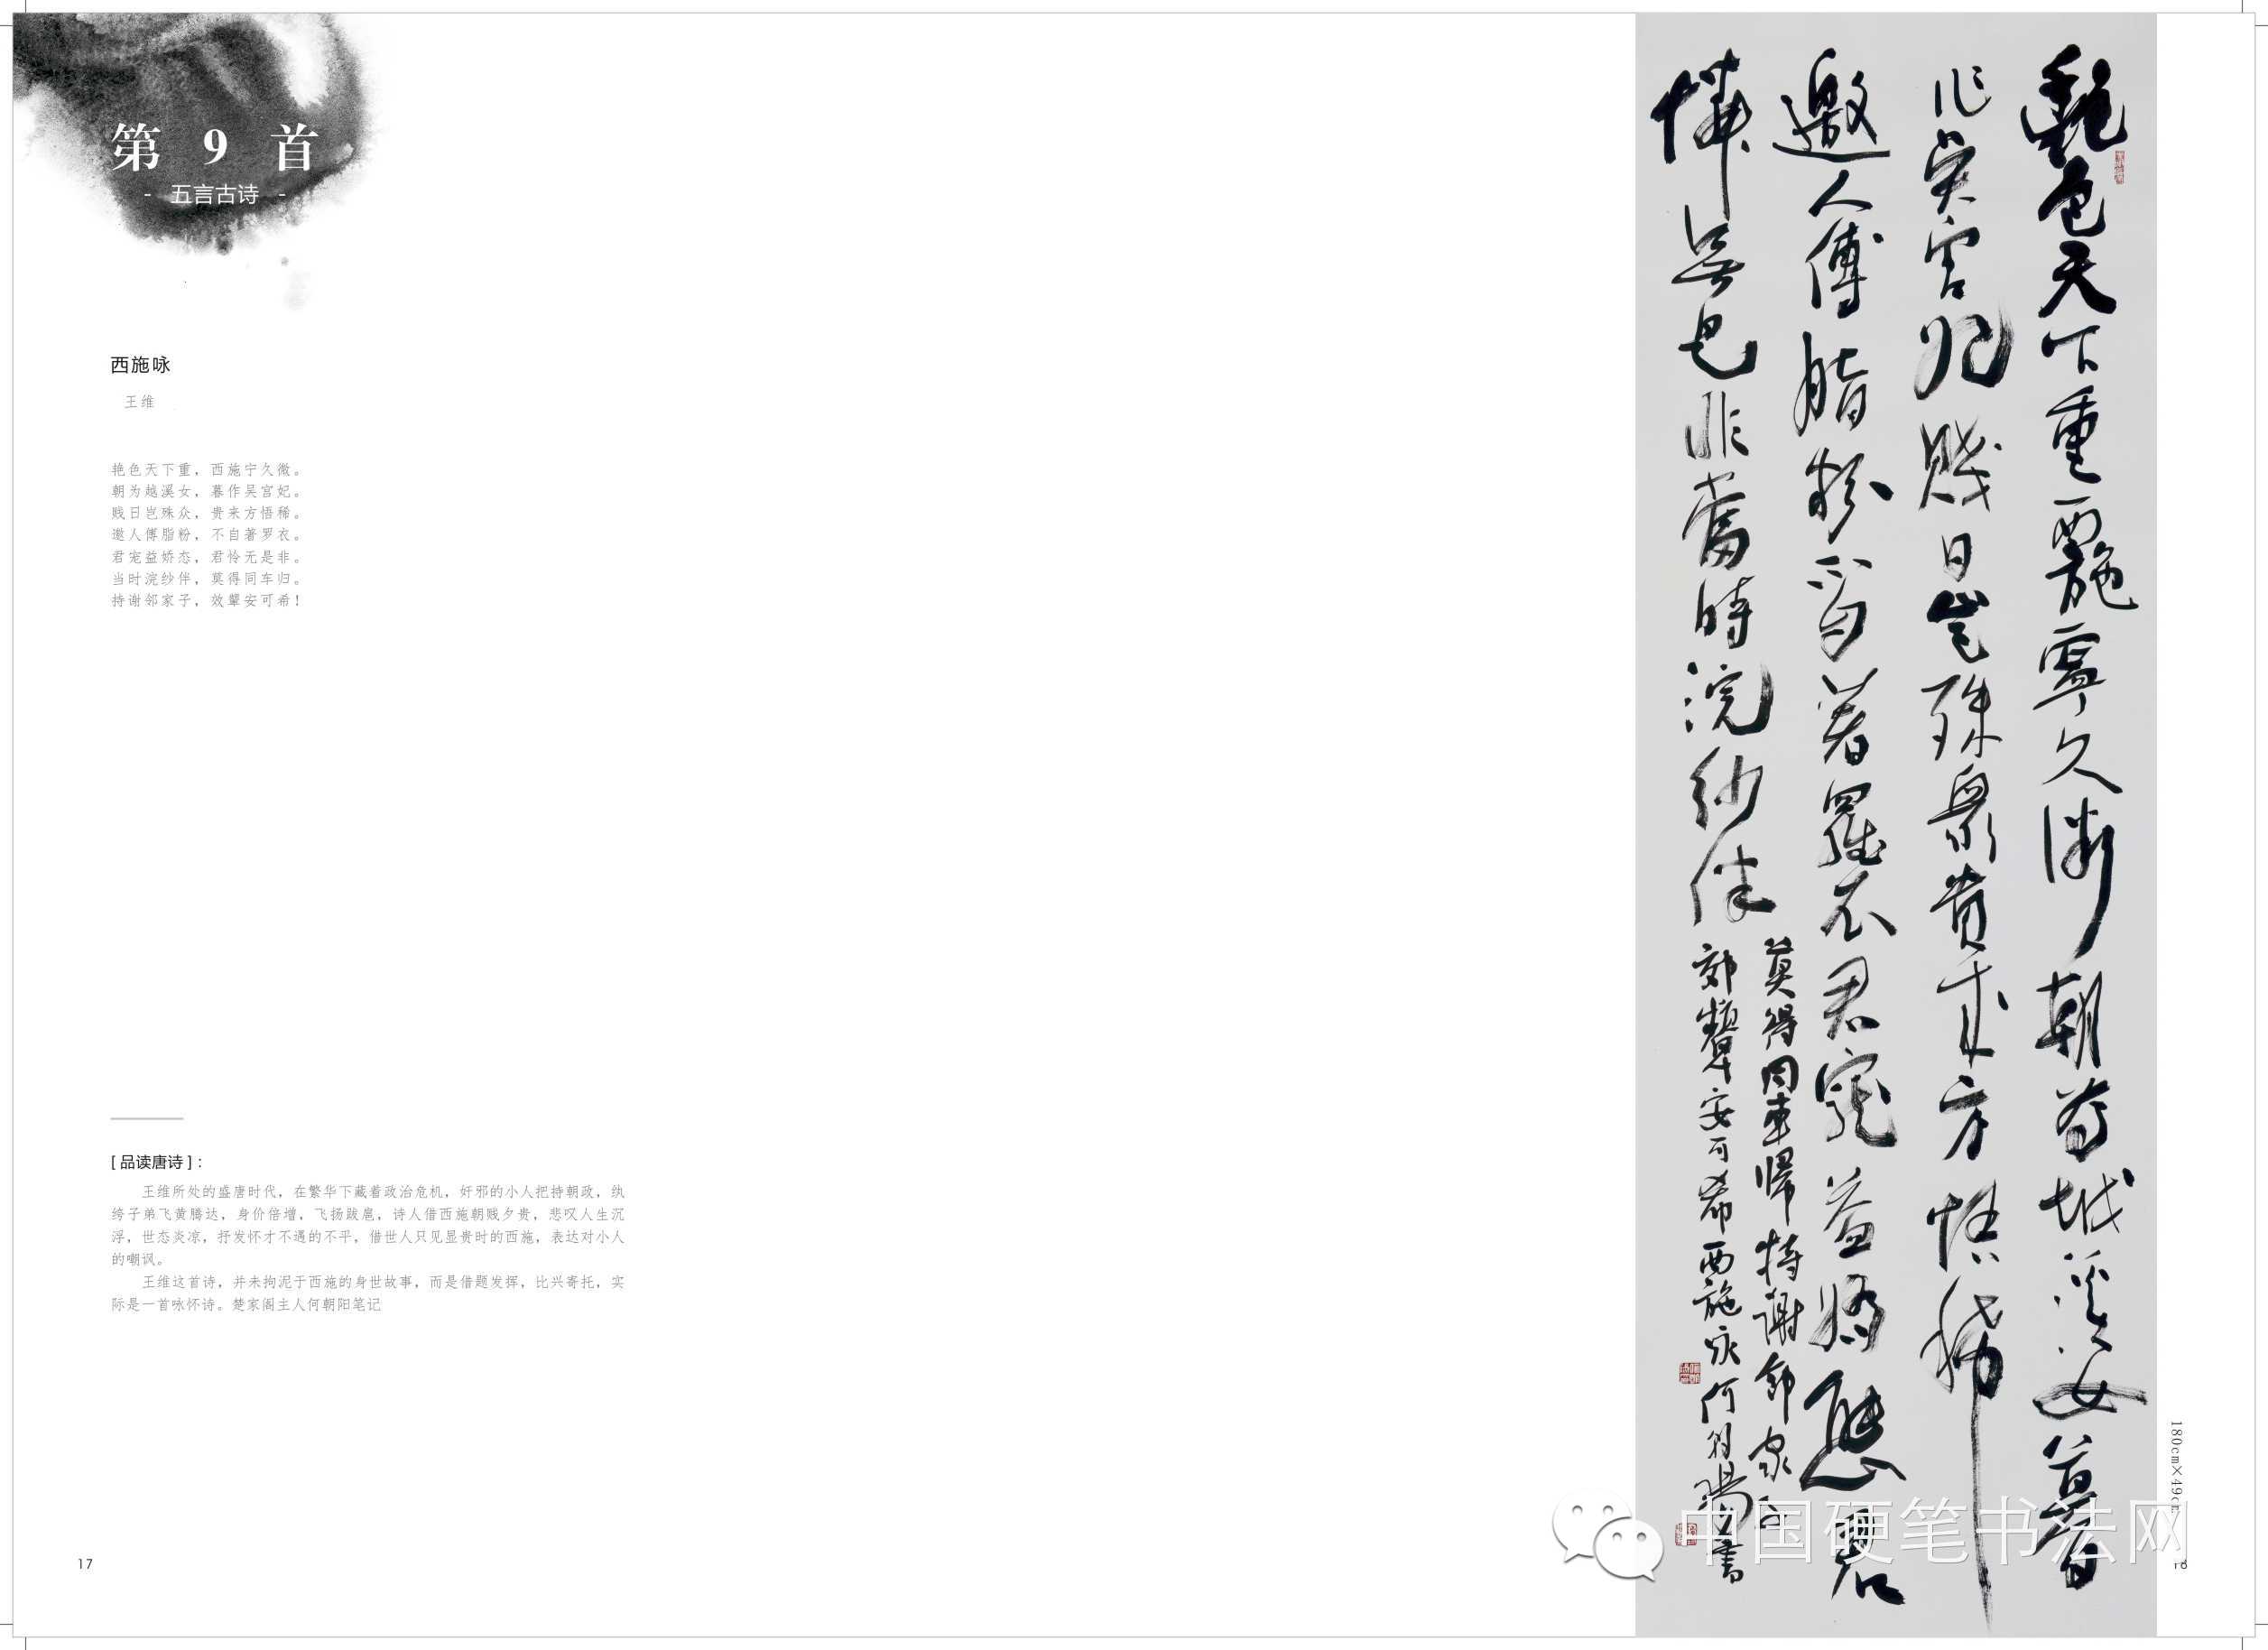 第 9 首
- 五言古诗 -
西施咏
王维
艳色天下重，西施宁久微。
朝为越溪女，暮作吴宫妃。
贱日岂殊众，贵来方悟稀。
邀人傅脂粉，不自著罗衣。
君宠益娇态，君怜无是非。
当时浣纱伴，莫得同车归。
持谢邻家子，效颦安可希！
[ 品读唐诗 ]：
王维所处的盛唐时代，在繁华下藏着政治危机，奸邪的小人把持朝政，纨
绔子弟飞黄腾达，身价倍增，飞扬跋扈，诗人借西施朝贱夕贵，悲叹人生沉
浮，世态炎凉，抒发怀才不遇的不平，借世人只见显贵时的西施，表达对小人
的嘲讽。
王维这首诗，并未拘泥于西施的身世故事，而是借题发挥，比兴寄托，实
际是一首咏怀诗。楚家阁主人何朝阳笔记
17
艷色天下重西施寧久微朝為越溪女暮
作吴宫妃賤日豈殊衆貴来方悟稀
邀人傅脂粉不自著羅衣君寵益嬌態君
憐無是非當時浣紗伴
莫得同車歸持謝鄰家子
效顰安可希西施詠何朝陽書
180cm×49cm
中国硬笔书法网
18